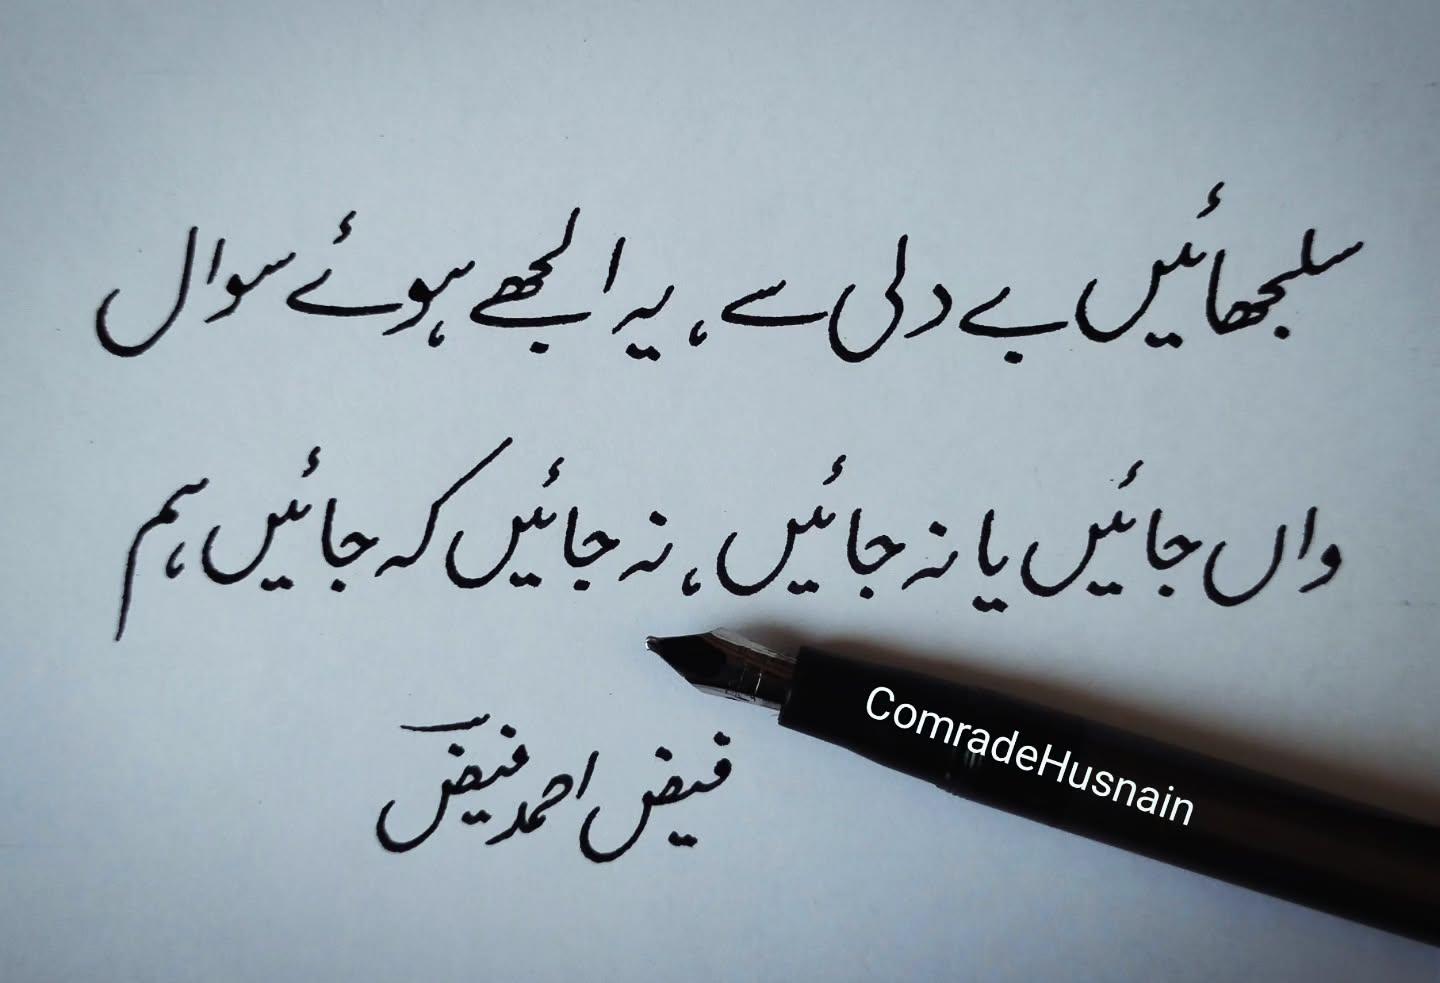 سلجھائیں بے دلی سے، یہ الجھے ہوئے سوال
واں جائیں یا نہ جائیں، نہ جائیں کہ جائیں ہم
فیض احمد فیضؔ
ComradeHusnain